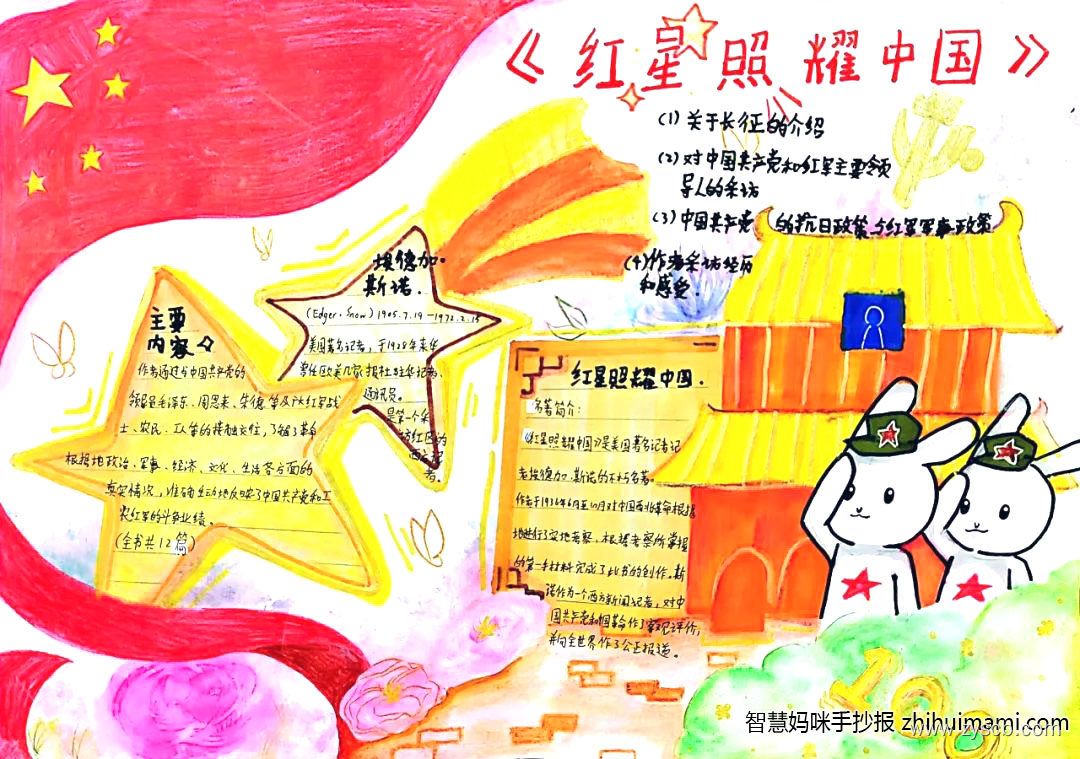 《红星照耀中国》
(1)关于长征的介绍
(2)对中国共产党和红军主要领
导人的采访
(3)中国共产党的抗日政策与红军军事政策
(4)作者采访经历
和感受.
埃德加·
斯诺.
(Edger·Snow)1905.7.19-1972.2.15
美国著名记者,于1928年来华
曾任欧美几家报社驻华记者、
通讯员。
是第一个采
访红区的
西方记
者。
主要
内容
作者通过与中国共产党的
领导毛泽东、周恩来、朱德等及广大红军战
士、农民、工人等的接触交往,了解了革命
根据地政治、军事、经济、文化、生活各方面的
真实情况,准确生动地反映了中国共产党和工
农红军的斗争业绩。
(全书共12篇)
红星照耀中国.
名著简介:
《红星照耀中国》是美国著名记者记
者埃德加.斯诺的不朽名著。
作者于1936年6月至10月对中国西北革命根据
地进行了实地考察,根据考察所掌握
的第一手材料完成了此书的创作.斯
诺作为一个西方新闻记者,对中
国共产党和中国革命作了客观评价,
并向全世界作了公正报道。
10
智慧妈咪手抄报 zhihuimami.com
www.zyscb.com